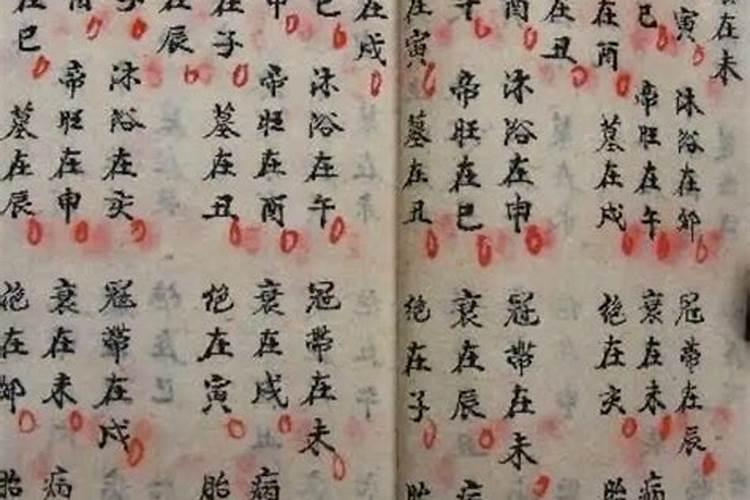 在未
寅
巳
在酉
在丑
酉
在寅
在戌
巳
申
在子
在辰
子
在巳
沐浴在卯
帝旺在午
墓在戌
沐浴在申
帝旺在巳
墓在丑
沐浴在午
帝旺在酉
墓在丑
沐浴在亥
帝旺在申
墓在辰
冠帶在辰
衰在未
绝在亥
冠帶在未
衰在辰
绝在子
冠帶在未
衰在戌
绝在寅
冠帶在戌
衰在未
绝在卯
病
胎
病
胎
病
胎
病
胎